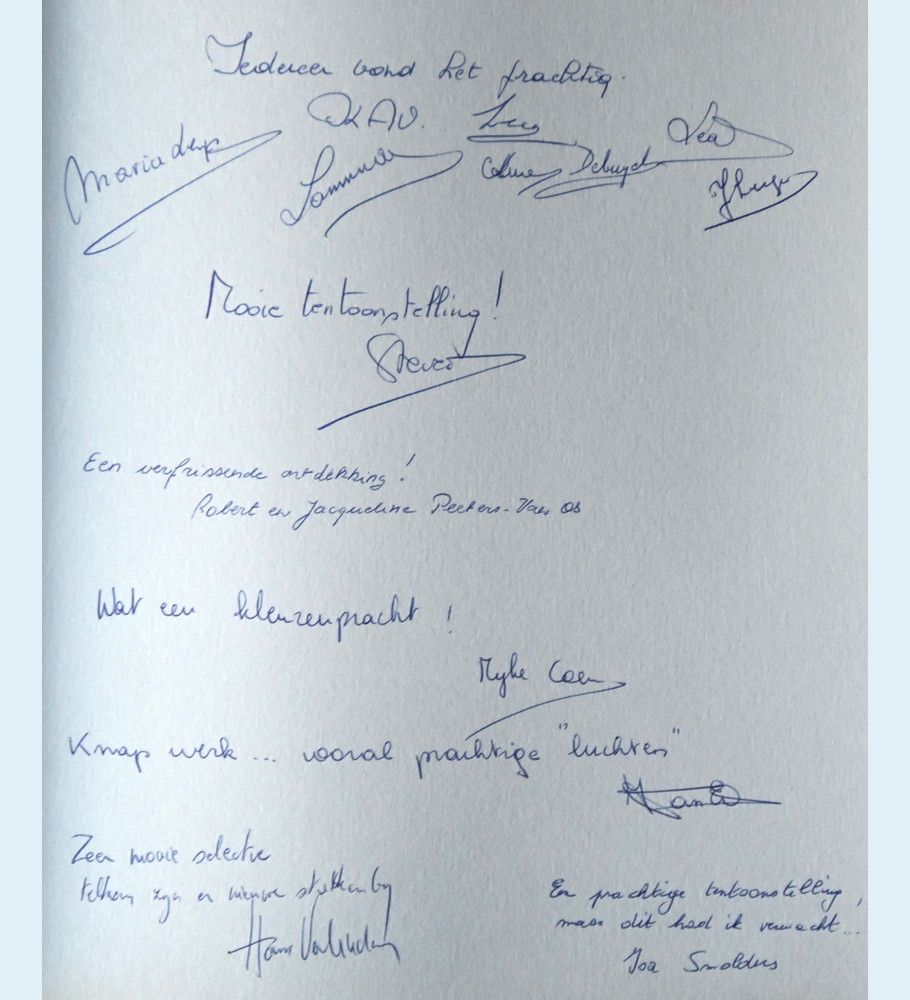 Iedereen vond het prachtig.
KAV.
Maria
Lea
Mooie tentoonstelling!
Steven
Een verfrissende ontdekking!
Robert en Jacqueline Peeters-Van Os
Wat een kleurenpracht!
Myke Coen
Knap werk... vooral prachtige "luchten"
Zeer mooie selectie
telkens zijn er nieuwe
Hans
Een prachtige tentoonstelling,
maar dit had ik verwacht...
Smolders